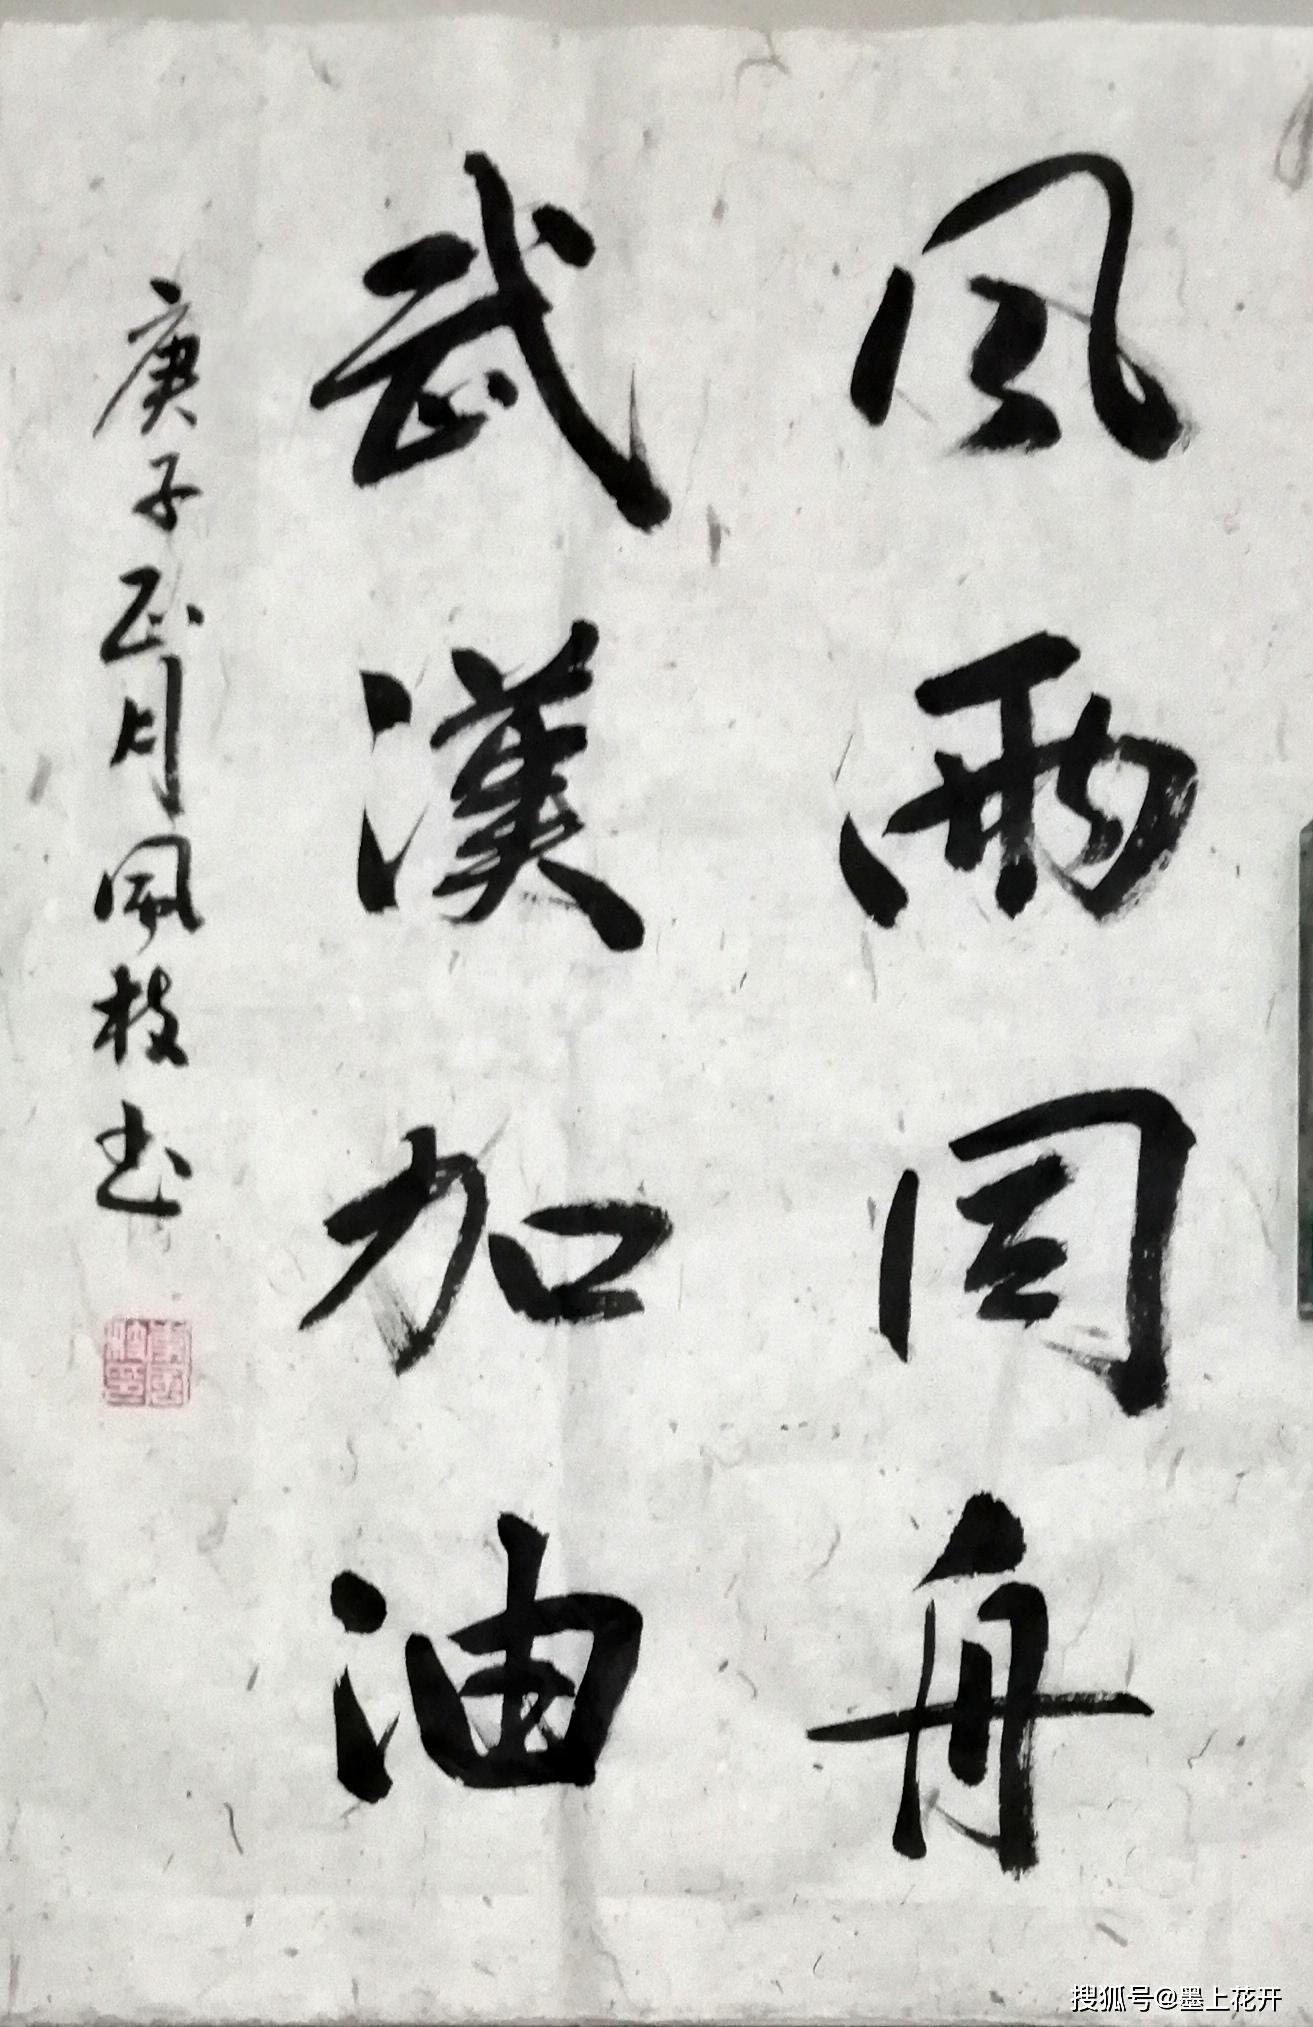 风雨同舟
武漢加油
庚子正月凤枝书
搜狐号@墨上花开